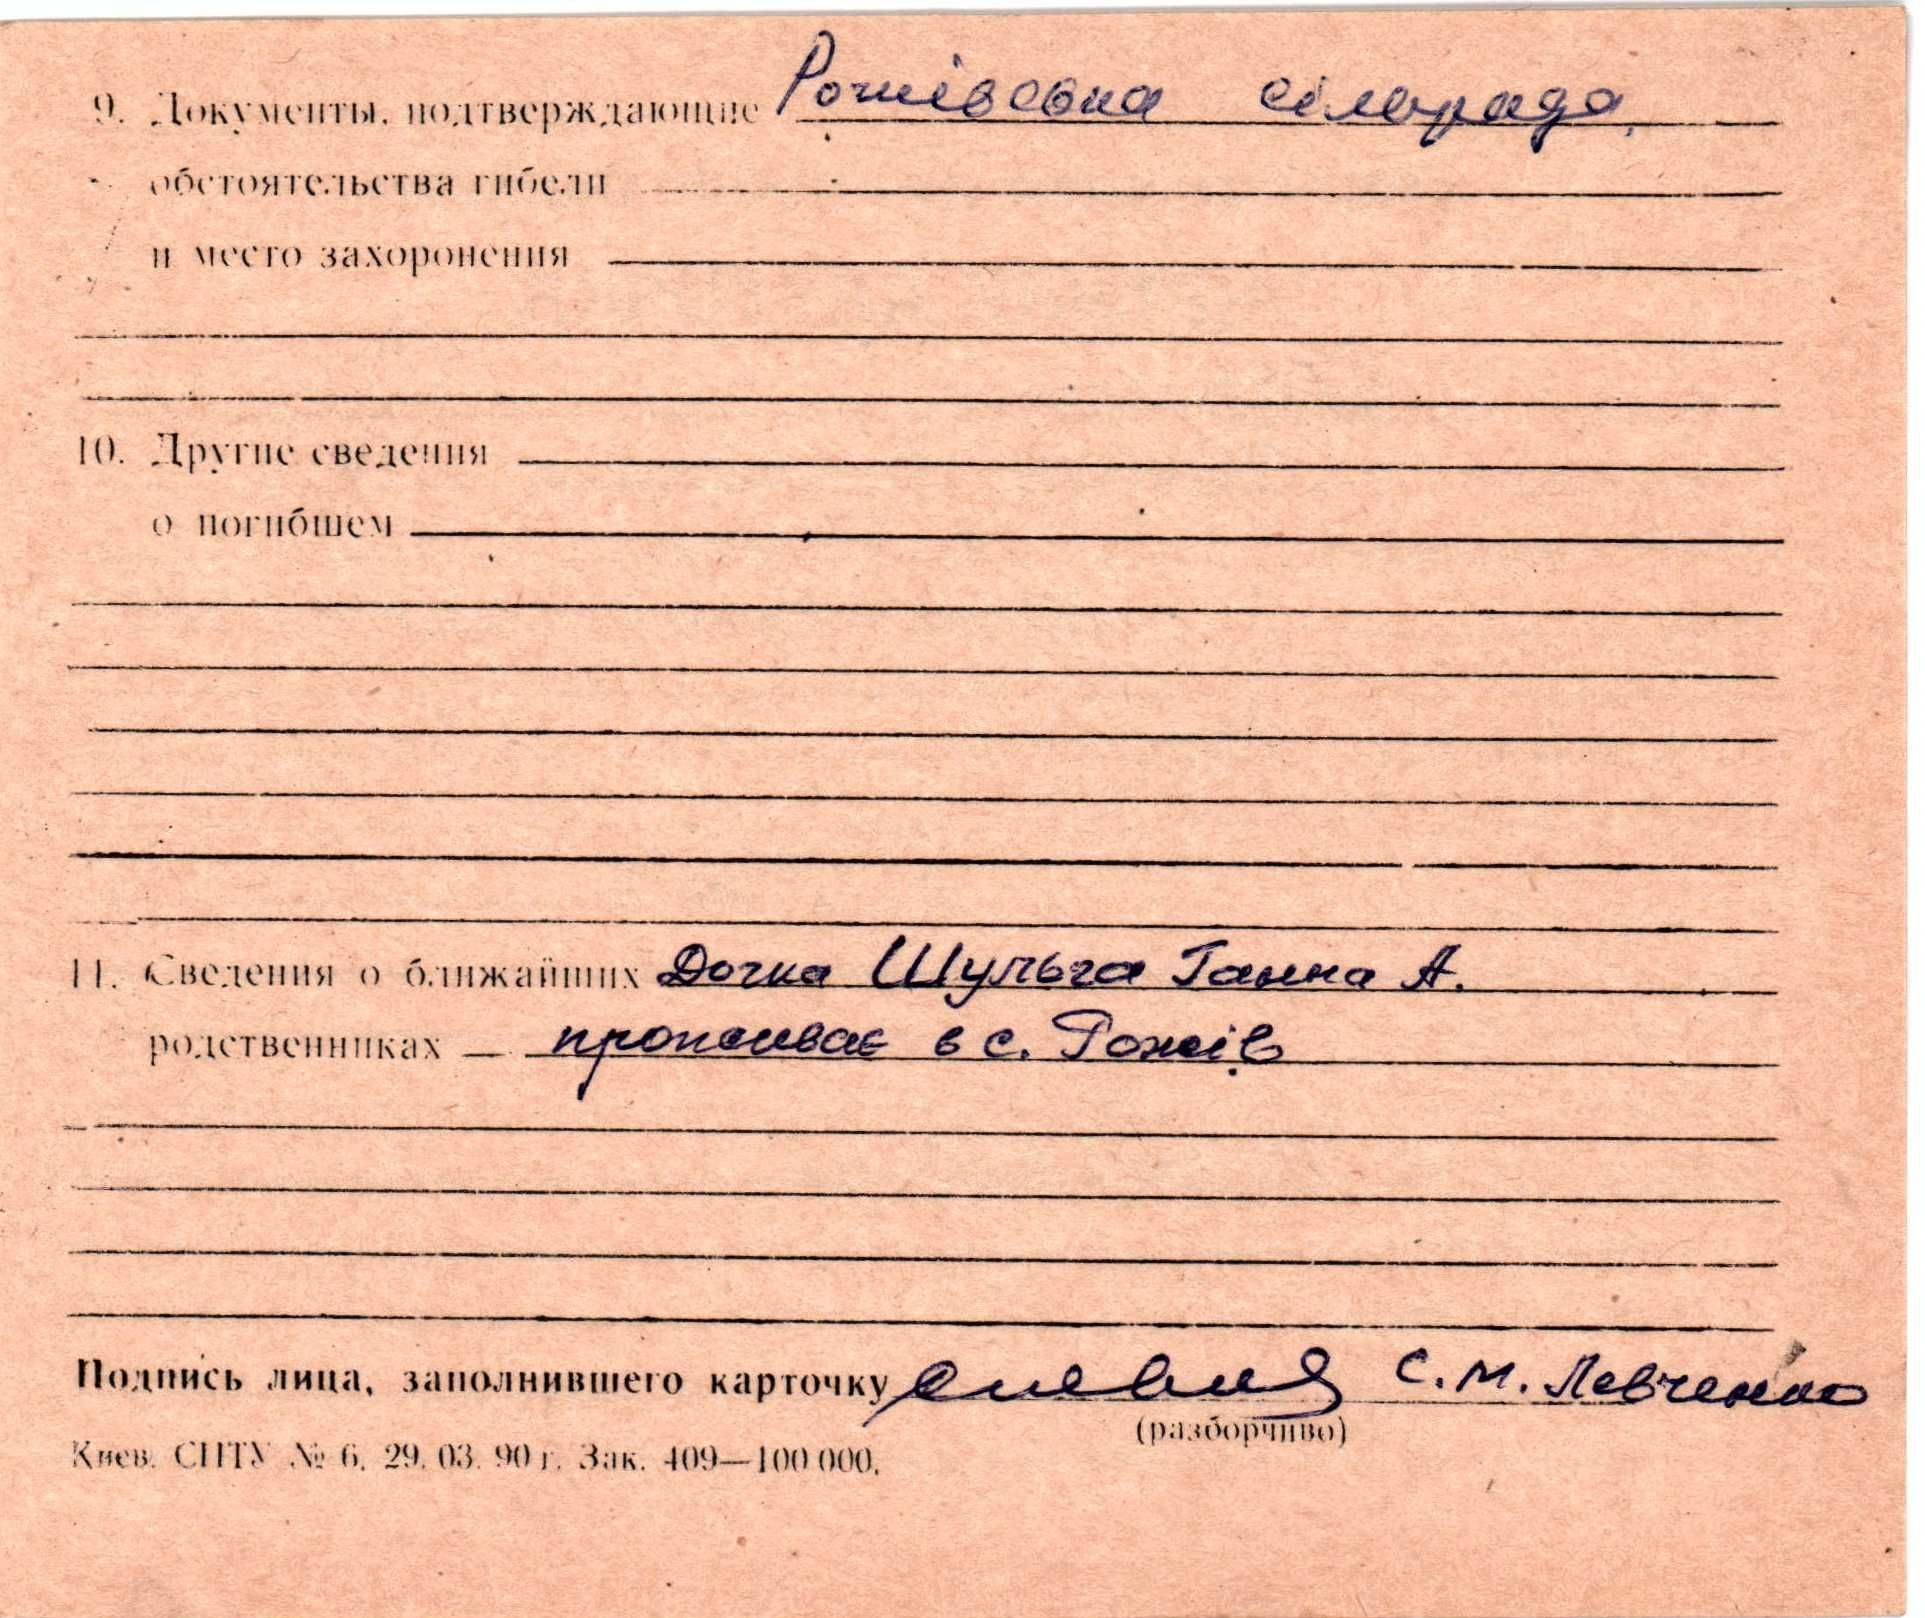 9. Документы, подтверждающие Рожівська сільрада,
обстоятельства гибели
и место захоронения
10. Другие сведения
о погибшем
11. Сведения о ближайших Дочка Шульга Ганна А.
родственниках проживає в с. Рожів
Подпись лица, заполнившего карточку С. М. Левченко
(разборчиво)
Киев. СПТУ № 6. 29. 03. 90 г. Зак. 409—100 000.